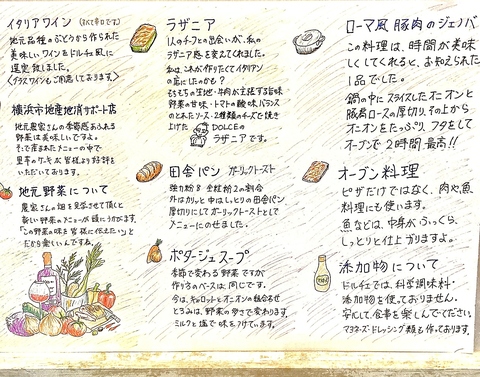 イタリアワイン (主に辛口です。)
地元品種のぶどうから作られた
美味しいワインをドルチェ風に
選定致しました。
<グラスワインもご用意しております>
横浜市地産地消サポート店
地元農家さんの季節感あふれる
野菜は美味しいですよ。
そこで産まれたメニューの中で
里芋のケーキが皆様より好評を
いただいております。
地元野菜について
農家さんの畑を見させて頂くと
新しい野菜のメニューが頭にうかびます。
「この野菜の味を皆様に伝えたい」と
だから楽しいんですね。
ラザニア
1人のシェフとの出会いが、私の
ラザニア感を変えてくれました。
私は、これが作りたくてイタリアン
の店にしたのかも?
もちもちの生地・牛肉が主張する旨味
野菜の甘味・トマトの酸味、バランス
のとれたソース・2種類のチーズで焼き
上げた DOLCEの
ラザニアです。
田舎パン ガーリックトースト
強力粉8 全粒粉2の割合
外はカリッと中はしっとりの田舎パン
厚切りにしてガーリックトーストとして
メニューにのせました。
ポタージュスープ
季節で変わる野菜ですが
作り方のベースは同じです。
今は、キャロットとオニオンの組合せ
とろみは、野菜の歩きで変わります。
ミルクと塩で味をつけています。
ローマ風 豚肉のジェノバ
この料理は、時間が美味
しくしてくれると、お知えられた
1品でした。
鍋の中にスライスしたオニオンと
豚肩ロースの厚切り、その上から
オニオンをたっぷり、フタをして
オーブンで2時間、最高!!
オーブン料理
ピザだけではなく、肉や魚
料理にも使います。
魚などは、中身がふっくら、
しっとりと仕上がりますよ。
添加物について
ドルチェでは、科学調味料・
添加物を使っておりません。
安心して食事を楽しんでください。
マヨネーズ・ドレッシング類も作っております。